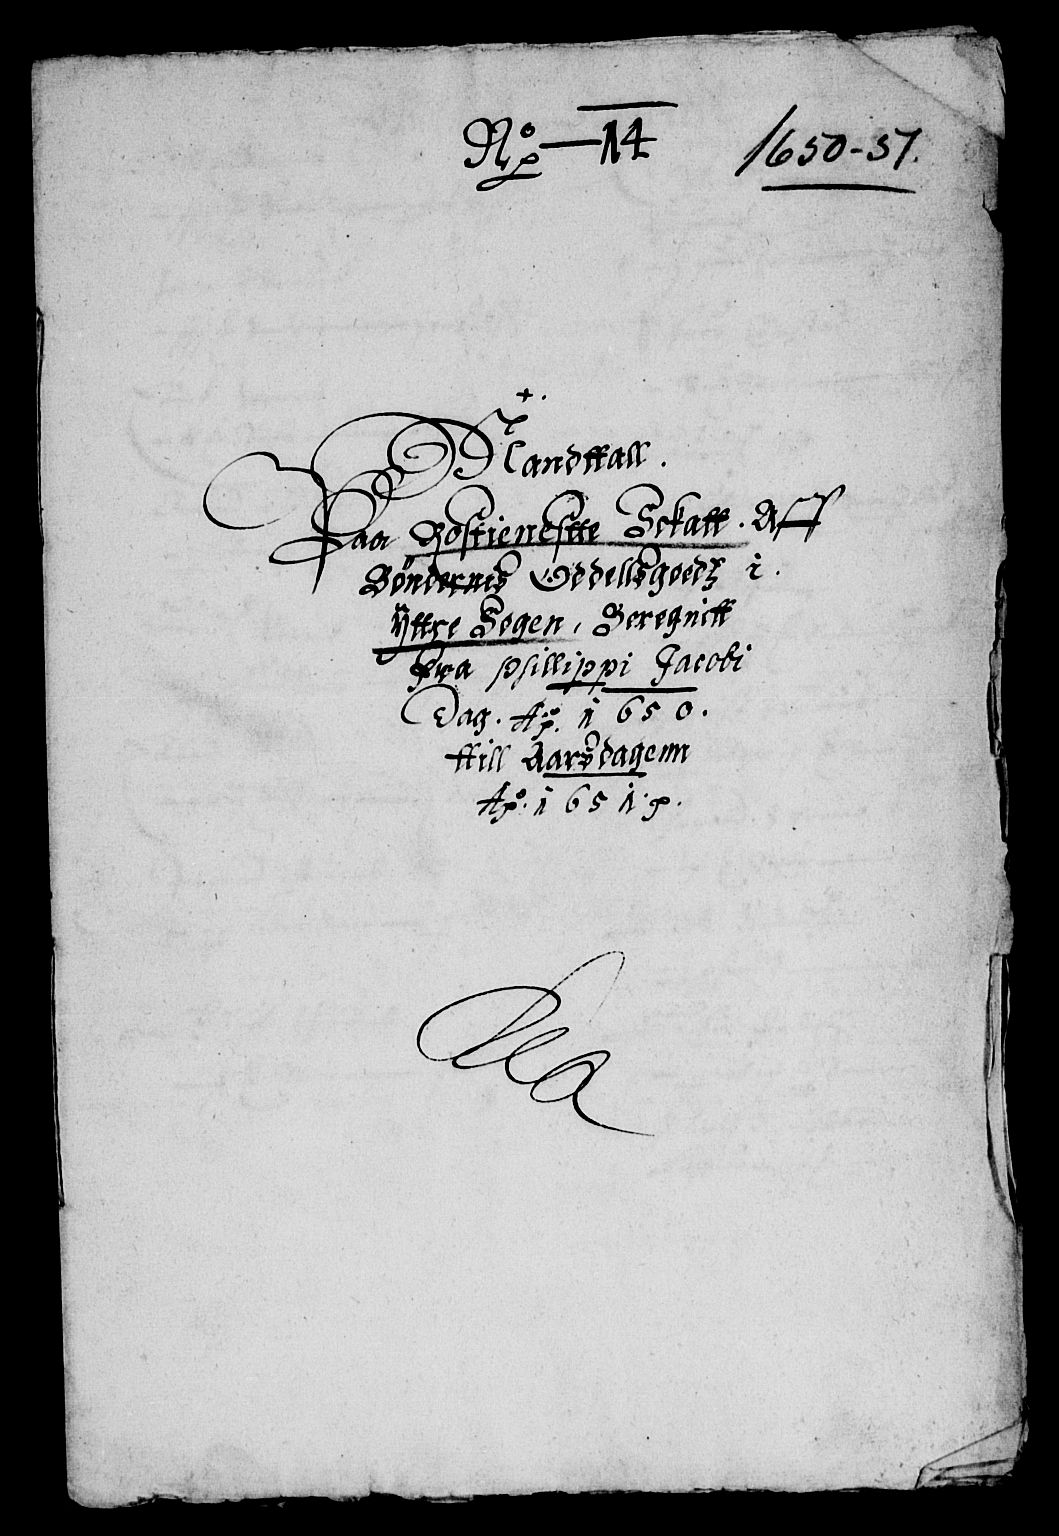 No — 14
1650-51.
Mandttall.
Paa Rostienestte Schatt. Aff
Bøndernis Oddellsgoedz i.
Ÿttre Sogen, Beregnitt
Fra Phillippi Jacobi
Dag. Ao. 1650.
ttill Aarsdagenn
Ao. 1651.